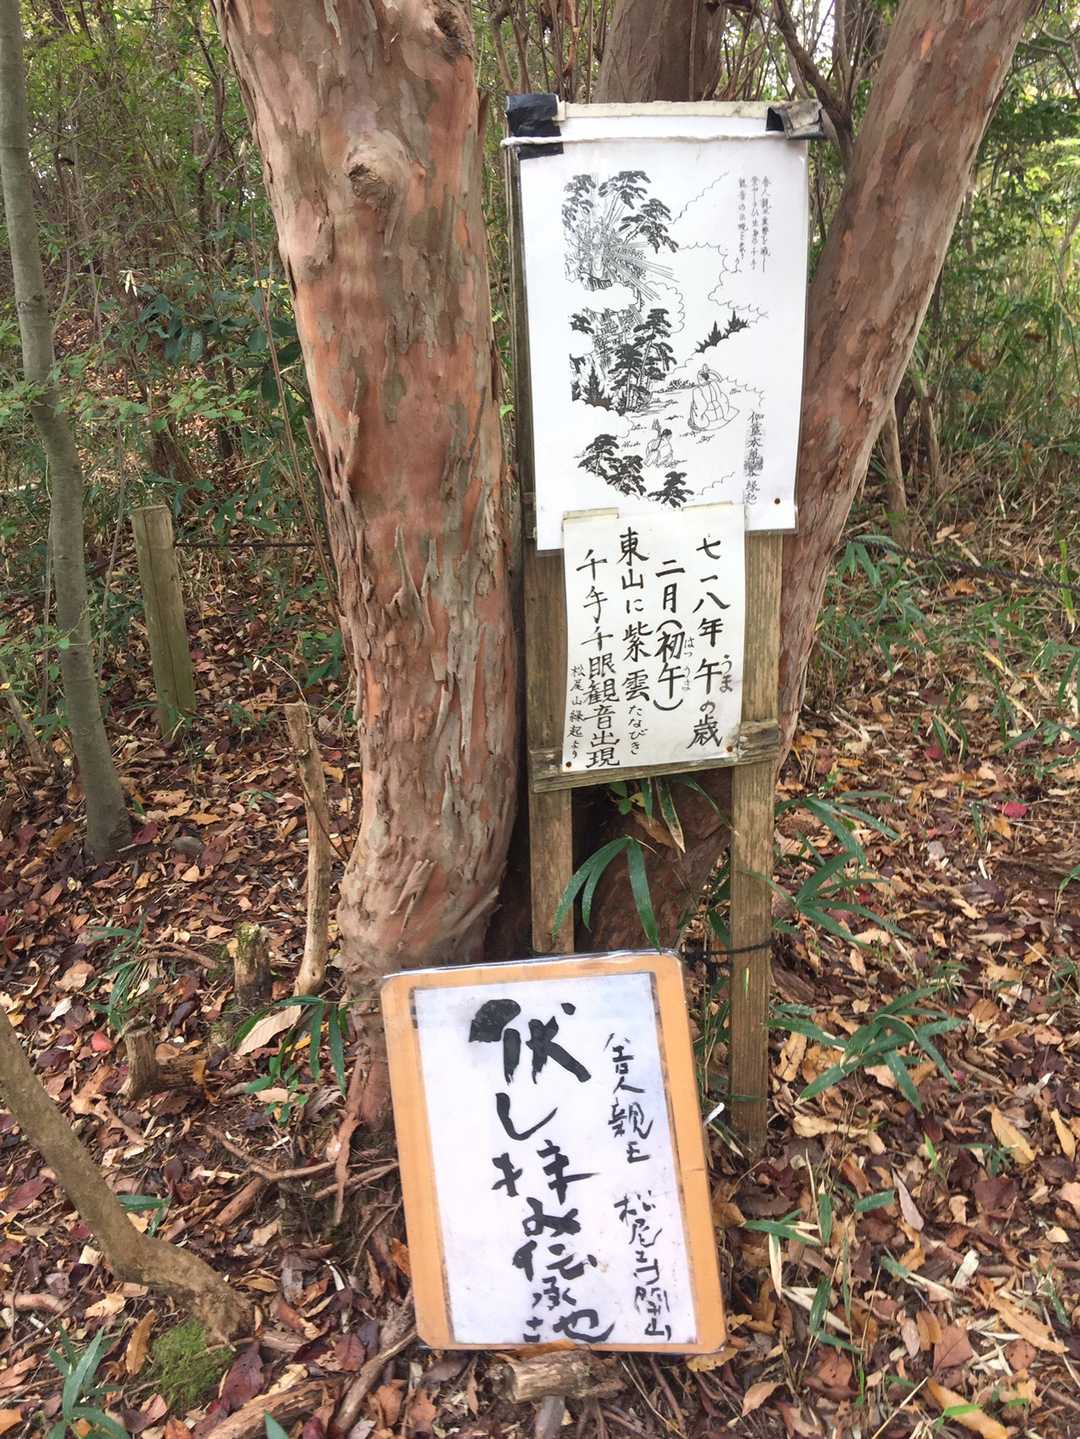 観音の出現を
七一八年 午の歳
うま
二月(初午)
はつうま
東山に紫雲たなびき
千手千眼観音出現
松尾山縁起より
舎人親王 松尾寺開山
伏し拝み伝承地